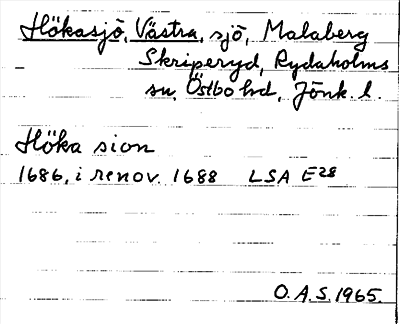 Hökasjö, Västra, sjö, Malaberg
Skriperyd, Rydaholms
sn, Östbo hd, Jönk. l.
Höka sion
1686, i renov. 1688 LSA E28
O.A.S. 1965.